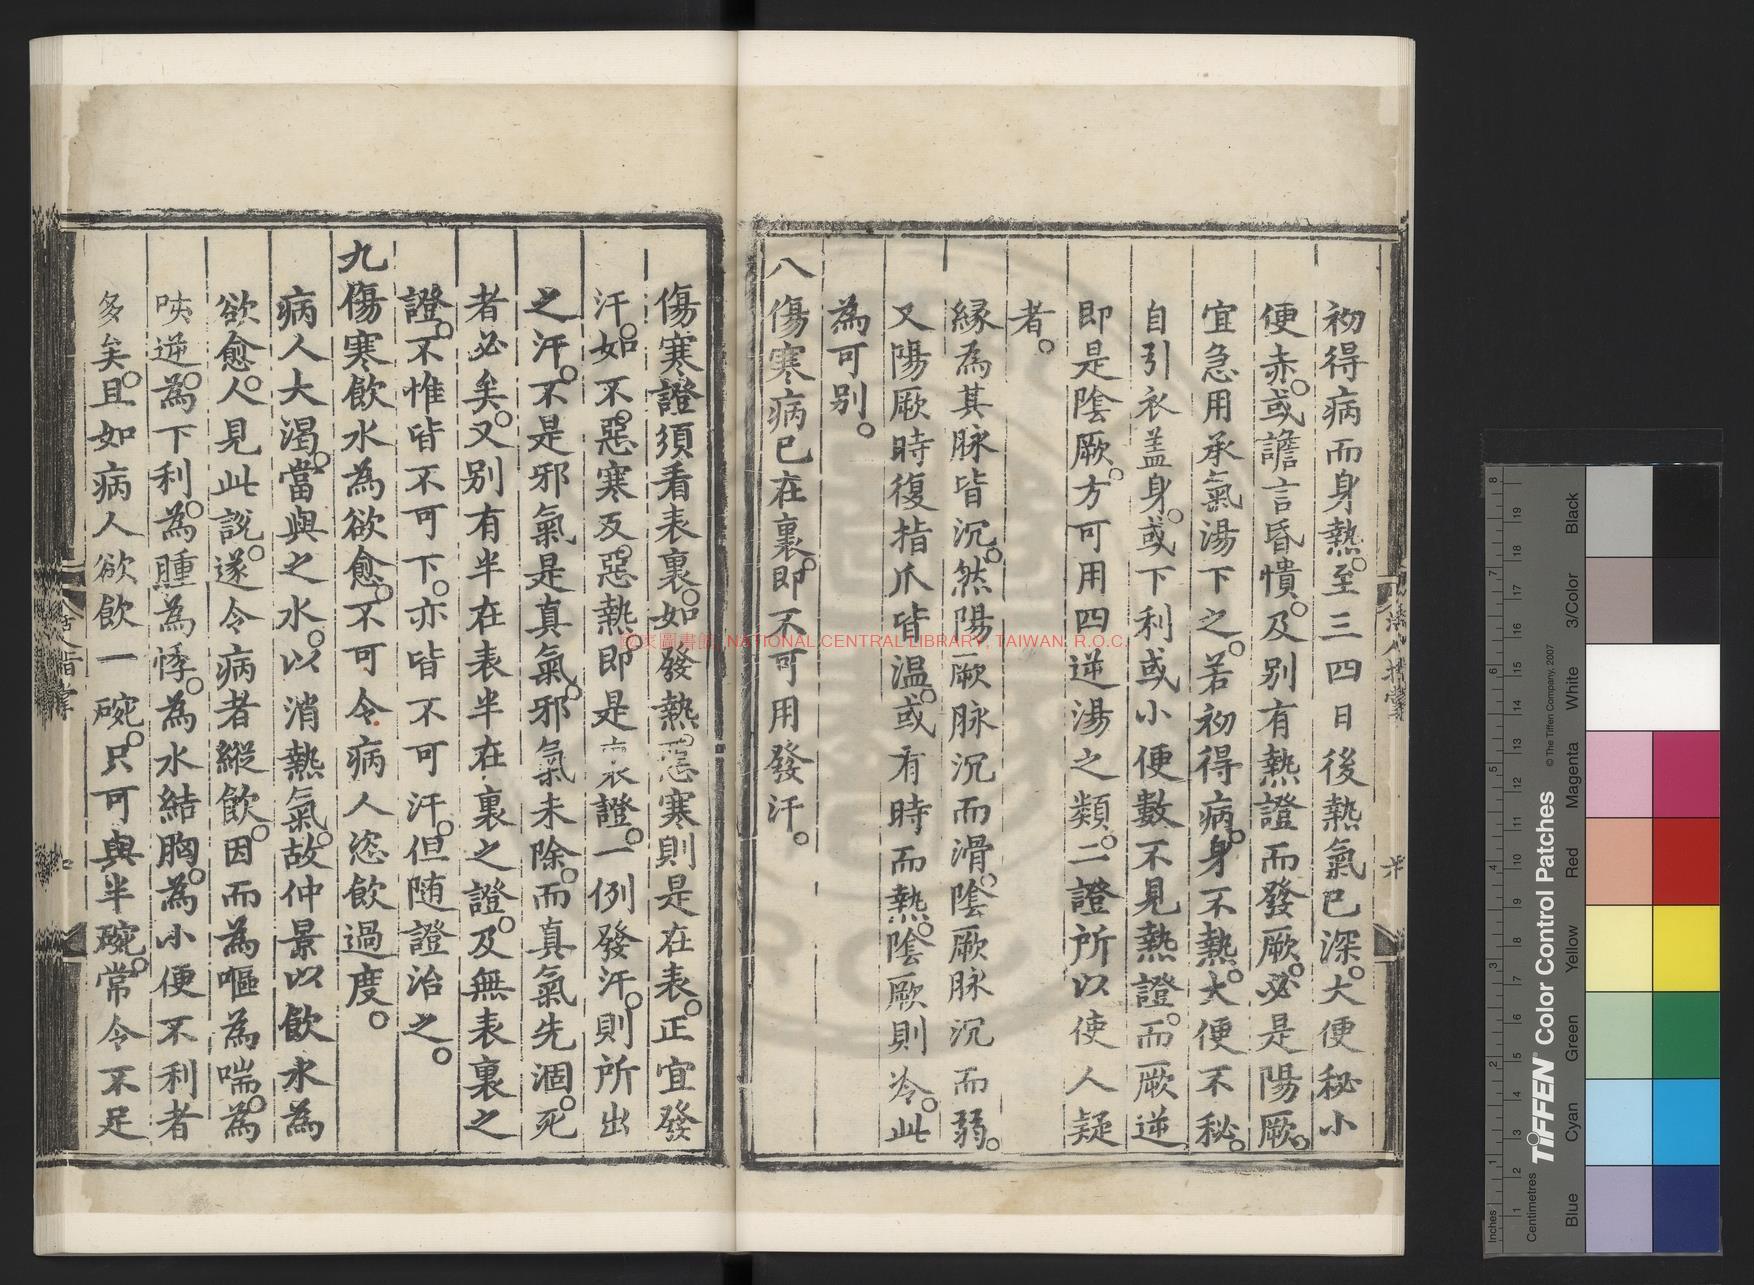 初得病而身熱至三四日後熱氣已深大便秘小
便赤或譫言昏憒及别有熱證而發厥必是陽厥
宜急用承氣湯下之若初得病身不熱大便不秘
自引衣盖身或下利或小便數不見熱證而厥逆
即是陰厥方可用四逆湯之類二證所以使人疑
者
縁為其脉皆沉然陽厥脉沉而滑陰厥脉沉而弱
又陽厥時復指爪皆温或有時而熱陰厥則冷此
為可别
八傷寒病已在裏即不可用發汗
傷寒證須看表裏如發熱惡寒則是在表正宜發
汗如不惡寒反惡熱即是裏證一例發汗則所出
之汗不是邪氣是真氣邪氣未除而真氣先涸死
者必矣又别有半在表半在裏之證及無表裏之
證不惟皆不可下亦皆不可汗但随證治之
九傷寒飲水為欲愈不可令病人恣飲過度
病人大渴當與之水以消熱氣故仲景以飲水為
欲愈人見此說遂令病者縱飲因而為嘔為喘為
咳逆為下利為腫為悸為水結胸為小便不利者
多矣且如病人欲飲一碗只可與半碗常令不足
NATIONAL CENTRAL LIBRARY, TAIWAN. R.O.C.
TIFFEN Color Control Patches
© The Tiffen Company, 2007
Inches
Centimetres
Blue
Cyan
Green
Yellow
Red
Magenta
White
3/Color
Black